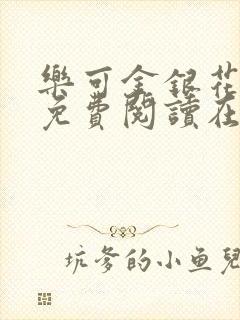 樂可金銀花
免費閱讀在
坑爹的小鱼兒